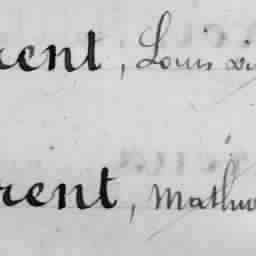 rent, Louis
rent, Mathu